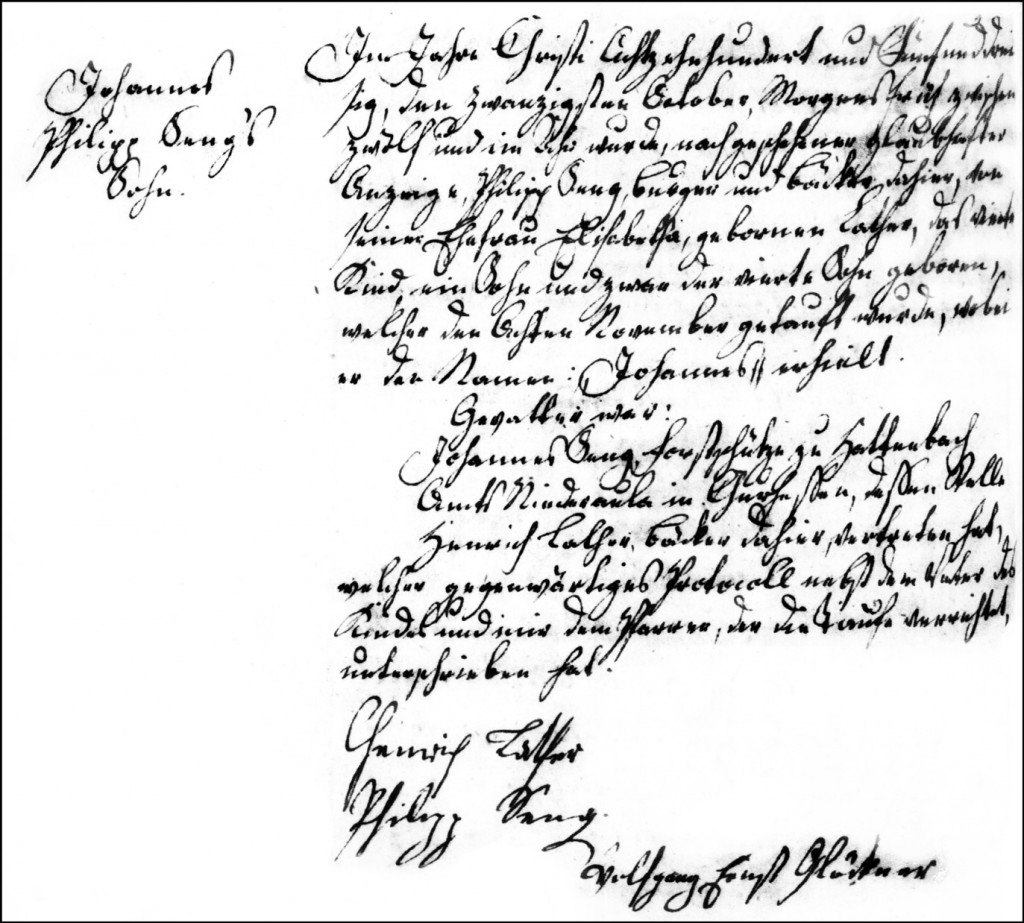 Johannes
Philipp Seng's
Sohn.
Im Jahre Christi Achtzehnhundert und Fünfunddrei
sig, den zwanzigsten October, Morgens früh zwischen
zwölf und ein Uhr wurde, nach geschehener glaubhafter
Anzeige, Philipp Seng, burger und bäcker dahier, von
seiner Ehefrau Elisabetha, gebornen Lather, das vierte
Kind, ein Sohn und zwar der vierte Sohn geboren,
welcher den Achten November getauft wurde, wobei
er den Namen: Johannes erhielt.
Gevatter war:
Johannes Seng, Forstschütze zu Hattenbach
Amts Niederaula in Churhessen, dessen Stelle
Henrich Lather, bäcker dahier, vertreten hat,
welcher gegenwärtiges Protocoll nebst dem Vater des
Kindes und mir dem Pfarrer, der die Taufe verrichtet,
unterschrieben hat.
Henrich Lather
Philipp Seng.
Wolfgang Ernst Glöckner